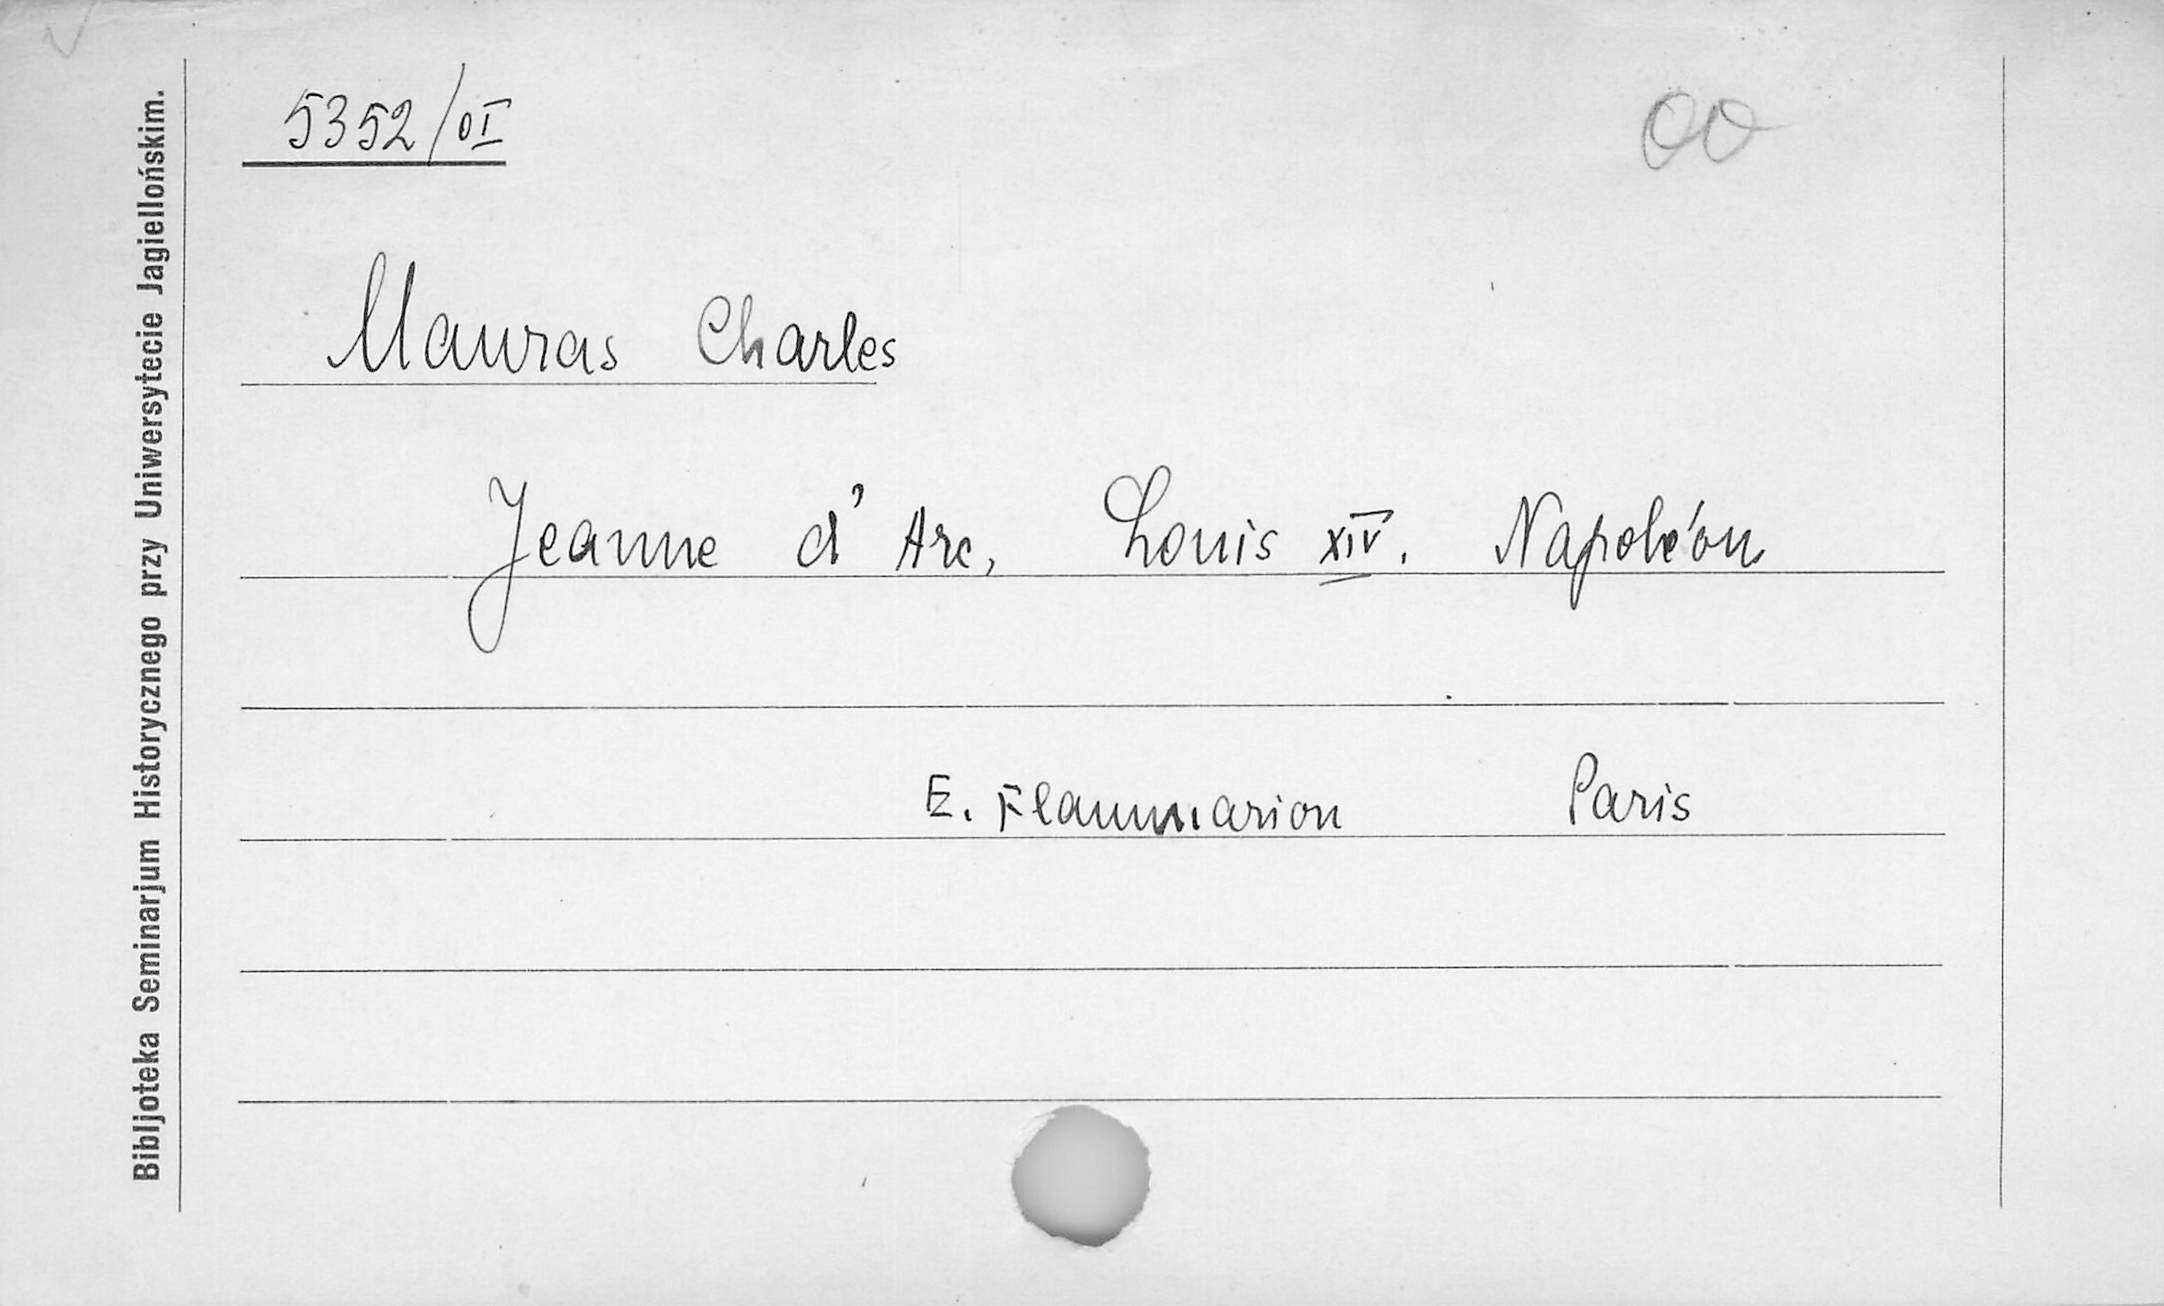 5352/OI
OO
Mauras Charles
Jeanne d'Arc, Louis XIV. Napoléon
E. Flammarion Paris
Bibljoteka Seminarjum Historycznego przy Uniwersytecie Jagiellońskim.